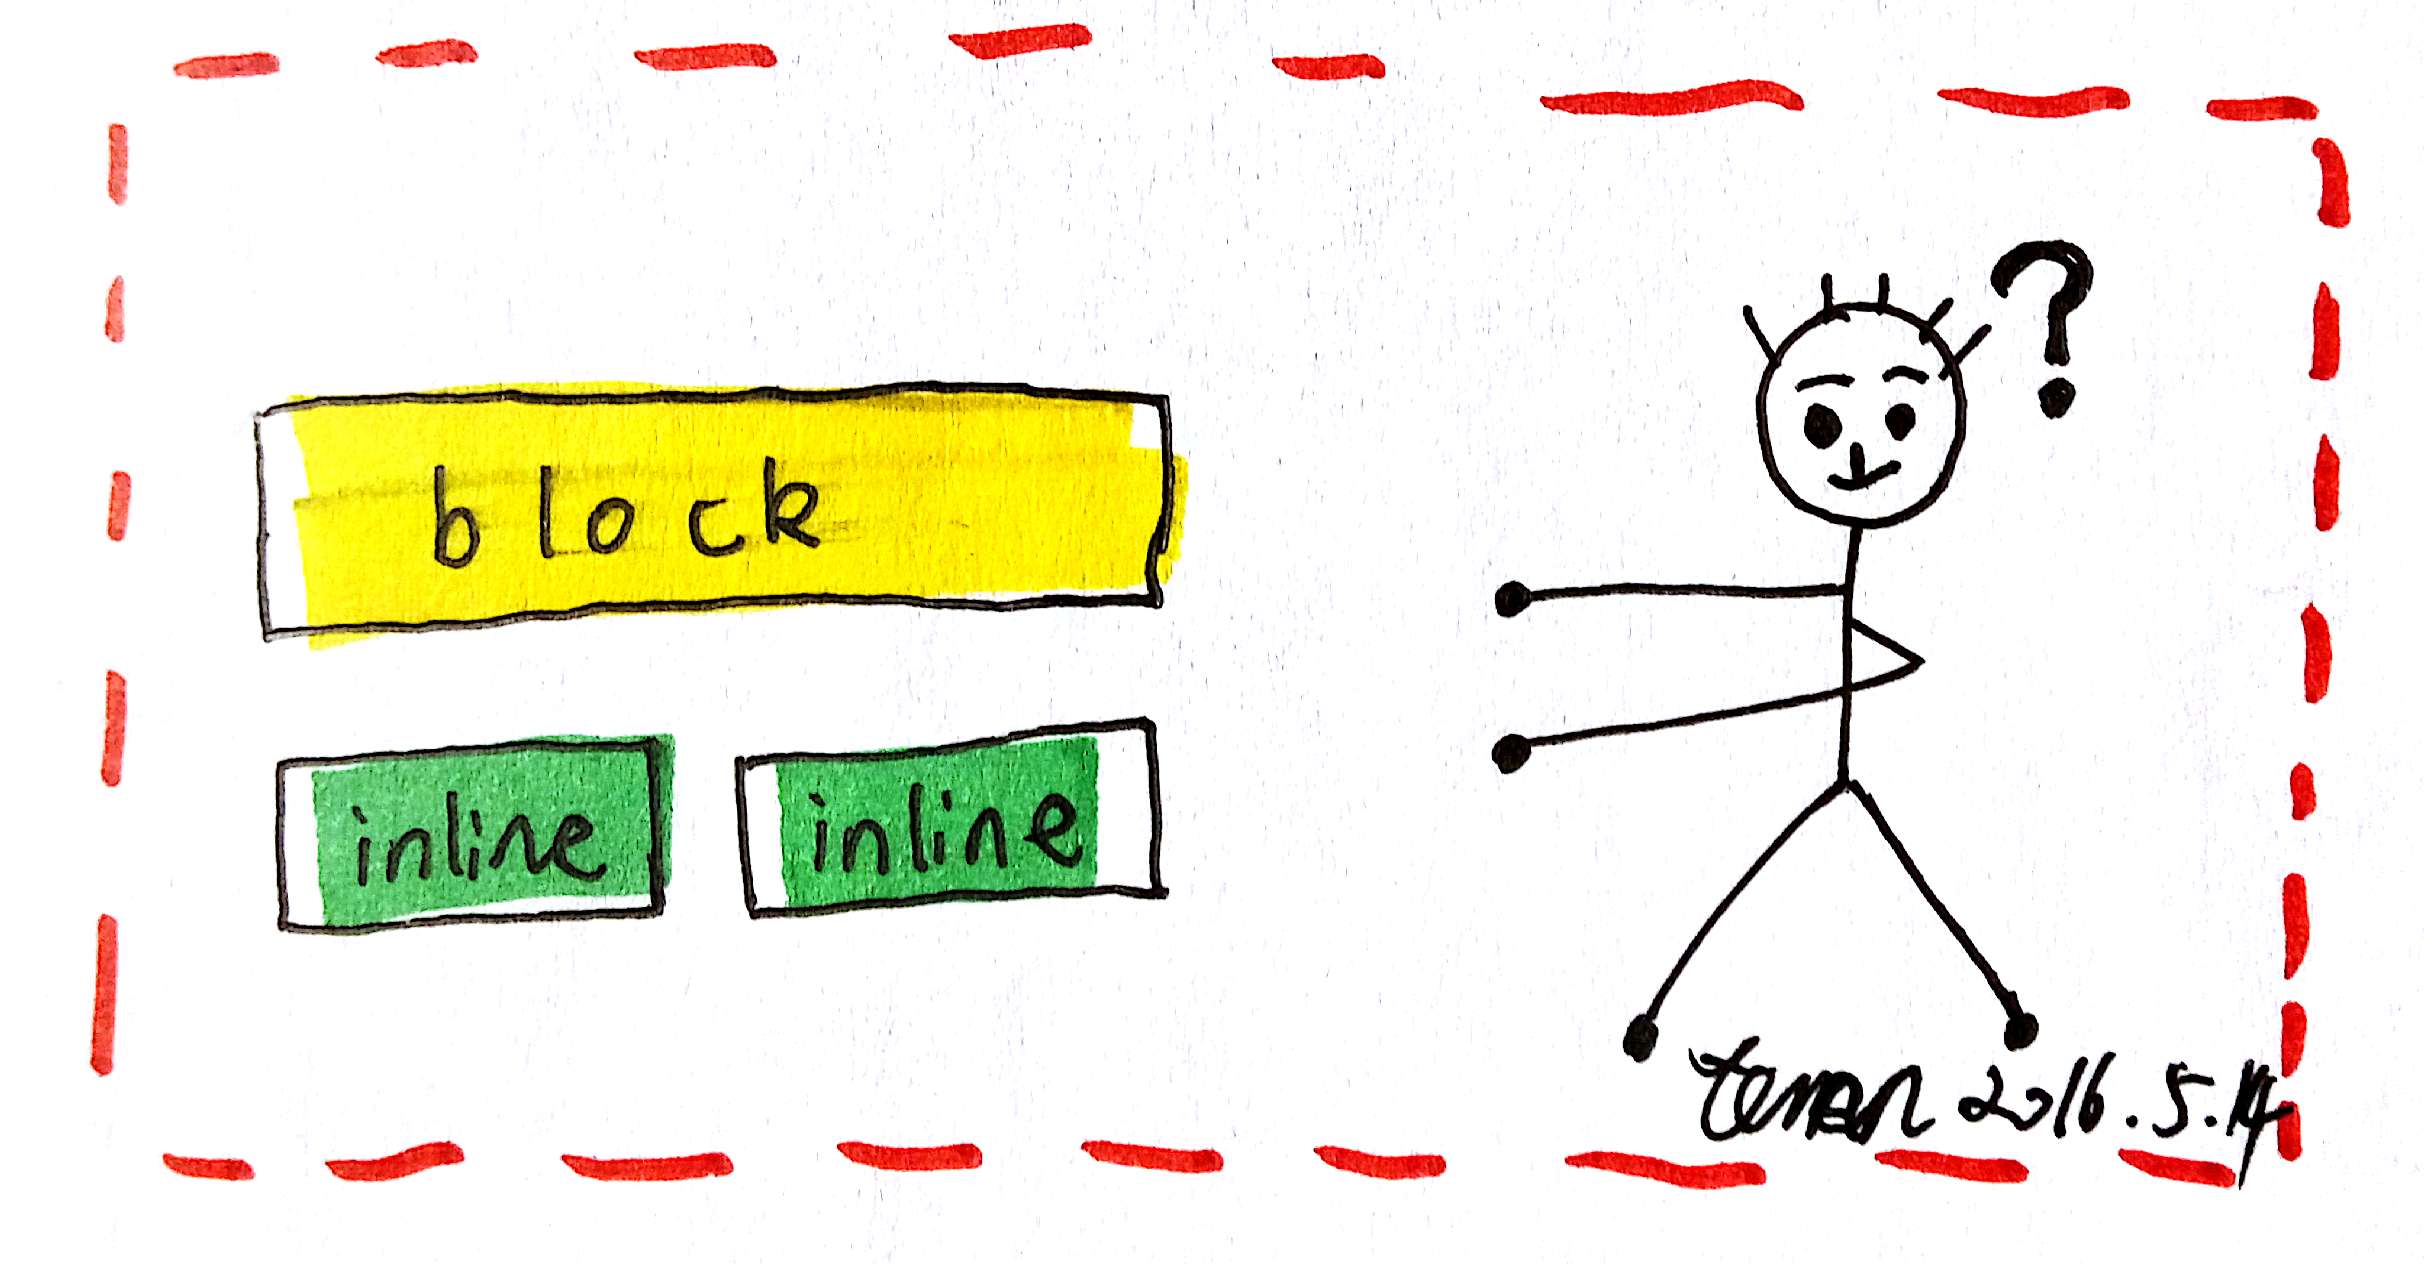 block
inline inline
?
2016.5.14